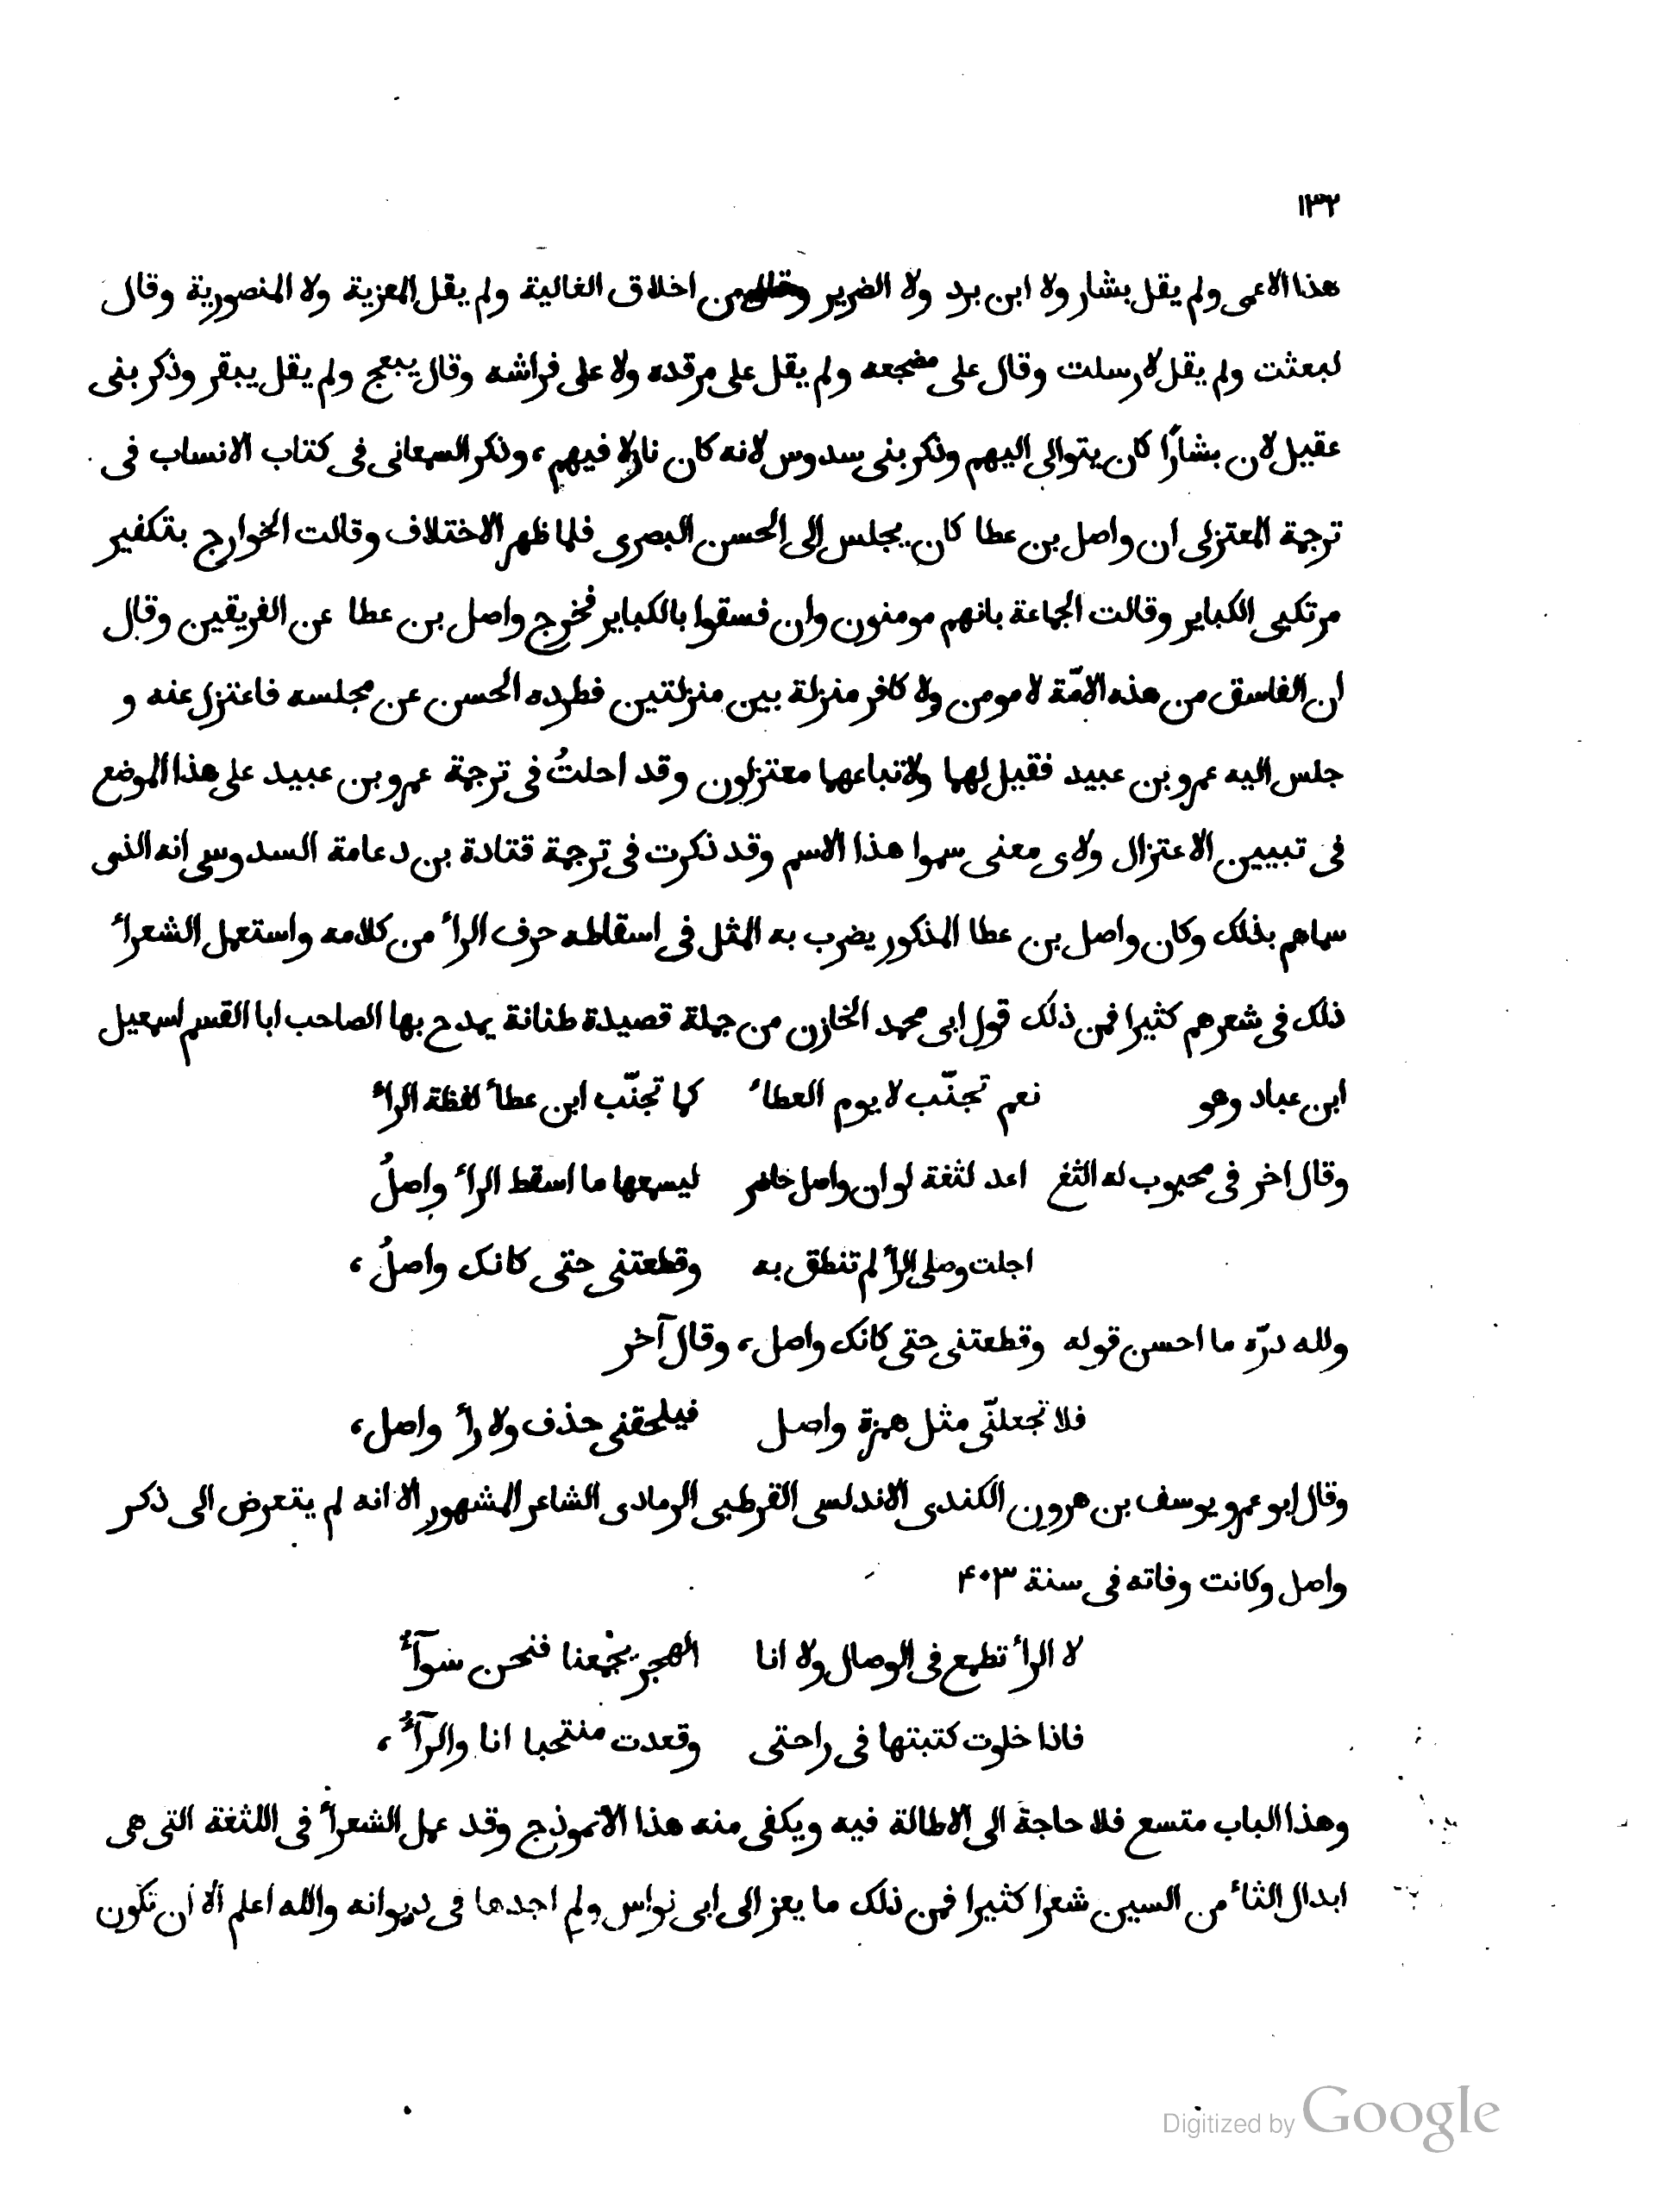 ١٣٢
هذا الاعمى ولم يقل بشار ولا ابن برد ولا الضرير وقال من اخلاق الغالية ولم يقل المعزية ولا المنصورية وقال
لبعثت ولم يقل لارسلت وقال على مضجعه ولم يقل على مرقده ولا على فراشه وقال يبعج ولم يقل يبقر وذكر بنى
عقيل لان بشارًا كان يتوالى اليهم وذكر بنى سدوس لانه كان نازلا فيهم، وذكر السمعانى فى كتاب الانساب فى
ترجمة المعتزلى ان واصل بن عطا كان يجلس الى الحسن البصرى فلما ظهر الاختلاف وقالت الخوارج بتكفير
مرتكبى الكباير وقالت الجماعة بانهم مومنون وان فسقوا بالكباير فخرج واصل بن عطا عن الفريقين وقال
ان الفاسق من هذه الامّة لا مومن ولا كافر منزلة بين منزلتين فطرده الحسن عن مجلسه فاعتزل عنه و
جلس اليه عمرو بن عبيد فقيل لهما ولاتباعهما معتزلون وقد احلتُ فى ترجمة عمرو بن عبيد على هذا الموضع
فى تبيين الاعتزال ولاى معنى سموا هذا الاسم وقد ذكرت فى ترجمة قتادة بن دعامة السدوسى انه الذى
سماهم بذلك وكان واصل بن عطا المذكور يضرب به المثل فى اسقاطه حرف الرأ من كلامه واستعمل الشعرأ
ذلك فى شعرهم كثيرا فمن ذلك قول ابى محمد الخازن من جملة قصيدة طنانة يمدح بها الصاحب ابا القسم اسمعيل
ابن عباد وهو نعم تجنّب لا يوم العطأ كما تجنّب ابن عطأ لفظة الرأ
وقال اخر فى محبوب له الثغ اعد لثغة لو ان واصل حاضر ليسمعها ما اسقط الرأ واصلُ
اجلت وصلى الرأ لم تنطق به وقطعتنى حتى كانك واصلُ،
ولله درّه ما احسن قوله وقطعتنى حتى كانك واصل، وقال آخر
فلا تجعلنّى مثل همزة واصل فيلحقنى حذف ولا رأ واصل،
وقال ابو عمرو يوسف بن هرون الكندى الاندلسى القرطبى الرمادى الشاعر المشهور الا انه لم يتعرض الى ذكر
واصل وكانت وفاته فى سنة ۴٠٣
لا الرأ تطمع فى الوصال ولا انا الهجر يجمعنا فنحن سوآأُ
فاذا خلوت كتبتها فى راحتى وقعدت منتحبا انا والرآأُ،
وهذا الباب متسع فلا حاجة الى الاطالة فيه ويكفى منه هذا الانموذج وقد عمل الشعرأ فى اللثغة التى هى
ابدال الثأ من السين شعرا كثيرا فمن ذلك ما يعز الى ابى نواس ولم اجدها فى ديوانه والله اعلم ألا ان تكون
Digitized by Google